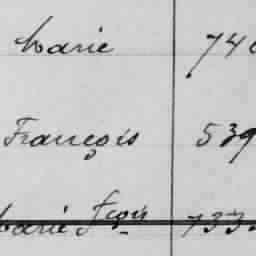 Marie 740
François 539
Marie fçois 733